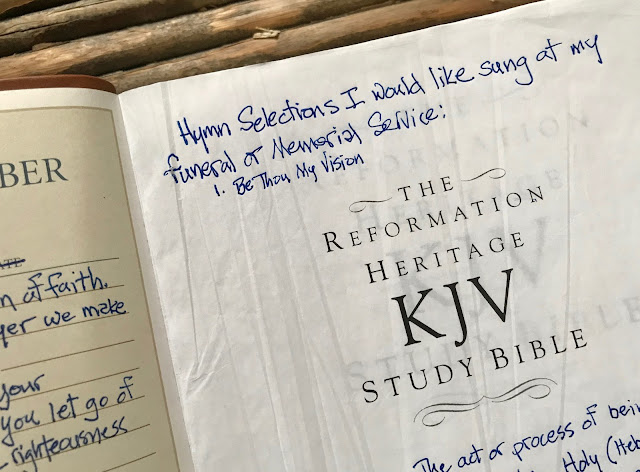 BER
ATE
n of faith.
yer we make
your
you let go of
righteousness
Hymn Selections I would like sung at my
funeral or Memorial Service:
1. Be Thou My Vision
THE
REFORMATION
HERITAGE
KJV
STUDY BIBLE
The act or process of bein
Holy (Heb